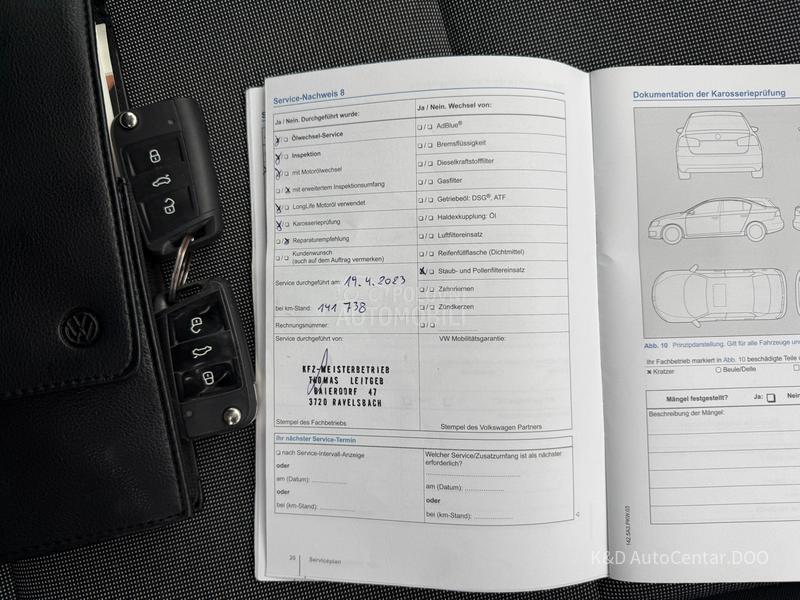 Service-Nachweis 8
Ja / Nein. Durchgeführt wurde:
Ölwechsel-Service
Inspektion
mit Motorölwechsel
mit erweitertem Inspektionsumfang
LongLife Motoröl verwendet
Karosserieprüfung
Reparaturempfehlung
Kundenwunsch
(auch auf dem Auftrag vermerken)
Service durchgeführt am: 19.4.2023
bei km-Stand: 141 738
Rechnungsnummer:
Service durchgeführt von:
KFZ-MEISTERBETRIEB
THOMAS LEITGEB
BAIERDORF 47
3720 RAVELSBACH
Stempel des Fachbetriebs
Ja / Nein. Wechsel von:
AdBlue®
Bremsflüssigkeit
Dieselkraftstofffilter
Gasfilter
Getriebeöl: DSG®, ATF
Haldexkupplung: Öl
Luftfiltereinsatz
Reifenfüllflasche (Dichtmittel)
Staub- und Pollenfiltereinsatz
Zahnriemen
Zündkerzen
VW Mobilitätsgarantie:
Stempel des Volkswagen Partners
Ihr nächster Service-Termin
nach Service-Intervall-Anzeige
oder
am (Datum):
oder
bei (km-Stand):
Welcher Service/Zusatzumfang ist als nächster
erforderlich?
am (Datum):
oder
bei (km-Stand):
20 Serviceplan
Dokumentation der Karosserieprüfung
Abb. 10 Prinzipdarstellung. Gilt für alle Fahrzeuge
Ihr Fachbetrieb markiert in Abb. 10 beschädigte Teile
Kratzer Beule/Delle
Mängel festgestellt? Ja: Nein
Beschreibung der Mängel:
142.5A3.PKW.03
AUTOMOBILI
K&D AutoCentar.DOO